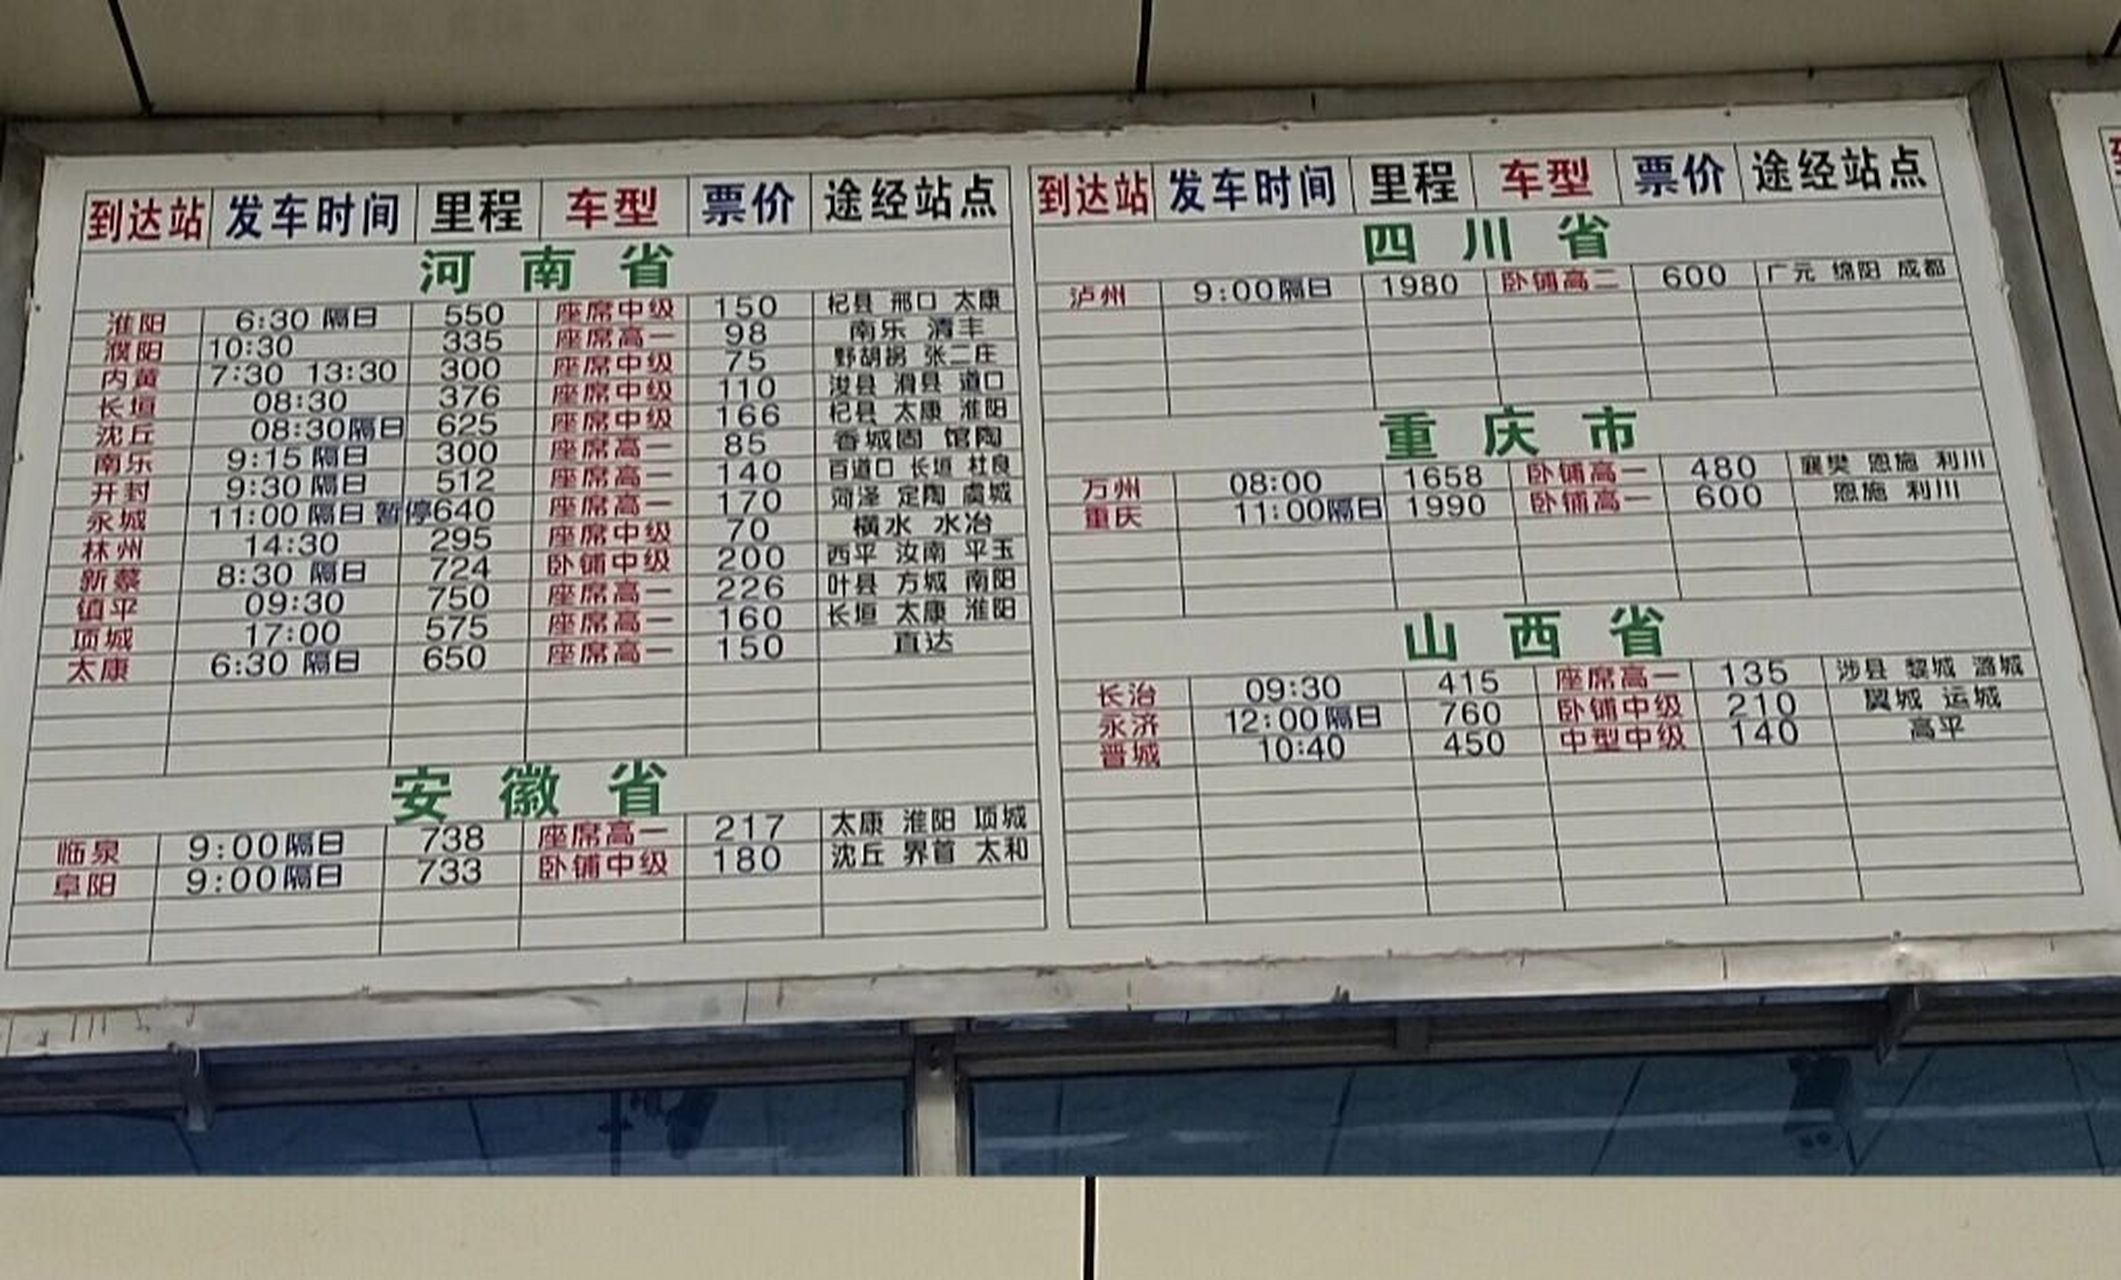 到达站 发车时间 里程 车型 票价 途经站点
河南省
淮阳 6:30 隔日 550 座席中级 150 杞县 邢口 太康
濮阳 10:30 335 座席高一 98 南乐 清丰
内黄 7:30 13:30 300 座席中级 75 野胡拐 张二庄
长垣 08:30 376 座席中级 110 浚县 滑县 道口
沈丘 08:30隔日 625 座席中级 166 杞县 太康 淮阳
南乐 9:15 隔日 300 座席高一 85 香城固 馆陶
开封 9:30 隔日 512 座席高一 140 百道口 长垣 杜良
永城 11:00 隔日 暂停 640 座席高一 170 菏泽 定陶 虞城
林州 14:30 295 座席中级 70 横水 水冶
新蔡 8:30 隔日 724 卧铺中级 200 西平 汝南 平玉
镇平 09:30 750 座席高一 226 叶县 方城 南阳
项城 17:00 575 座席高一 160 长垣 太康 淮阳
太康 6:30 隔日 650 座席高一 150 直达
安徽省
临泉 9:00隔日 738 座席高一 217 太康 淮阳 项城
阜阳 9:00隔日 733 卧铺中级 180 沈丘 界首 太和
到达站 发车时间 里程 车型 票价 途经站点
四川省
泸州 9:00隔日 1980 卧铺高二 600 广元 绵阳 成都
重庆市
万州 08:00 1658 卧铺高一 480 襄樊 恩施 利川
重庆 11:00隔日 1990 卧铺高一 600 恩施 利川
山西省
长治 09:30 415 座席高一 135 涉县 黎城 潞城
永济 12:00隔日 760 卧铺中级 210 翼城 运城
晋城 10:40 450 中型中级 140 高平